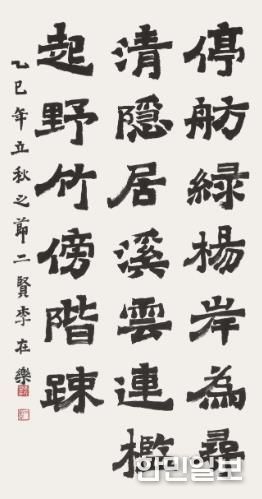 停舫綠楊岸為尋
清隱居溪雲連檻
起野竹傍階踈
乙巳年立秋之節二賢李在樂
한민일보